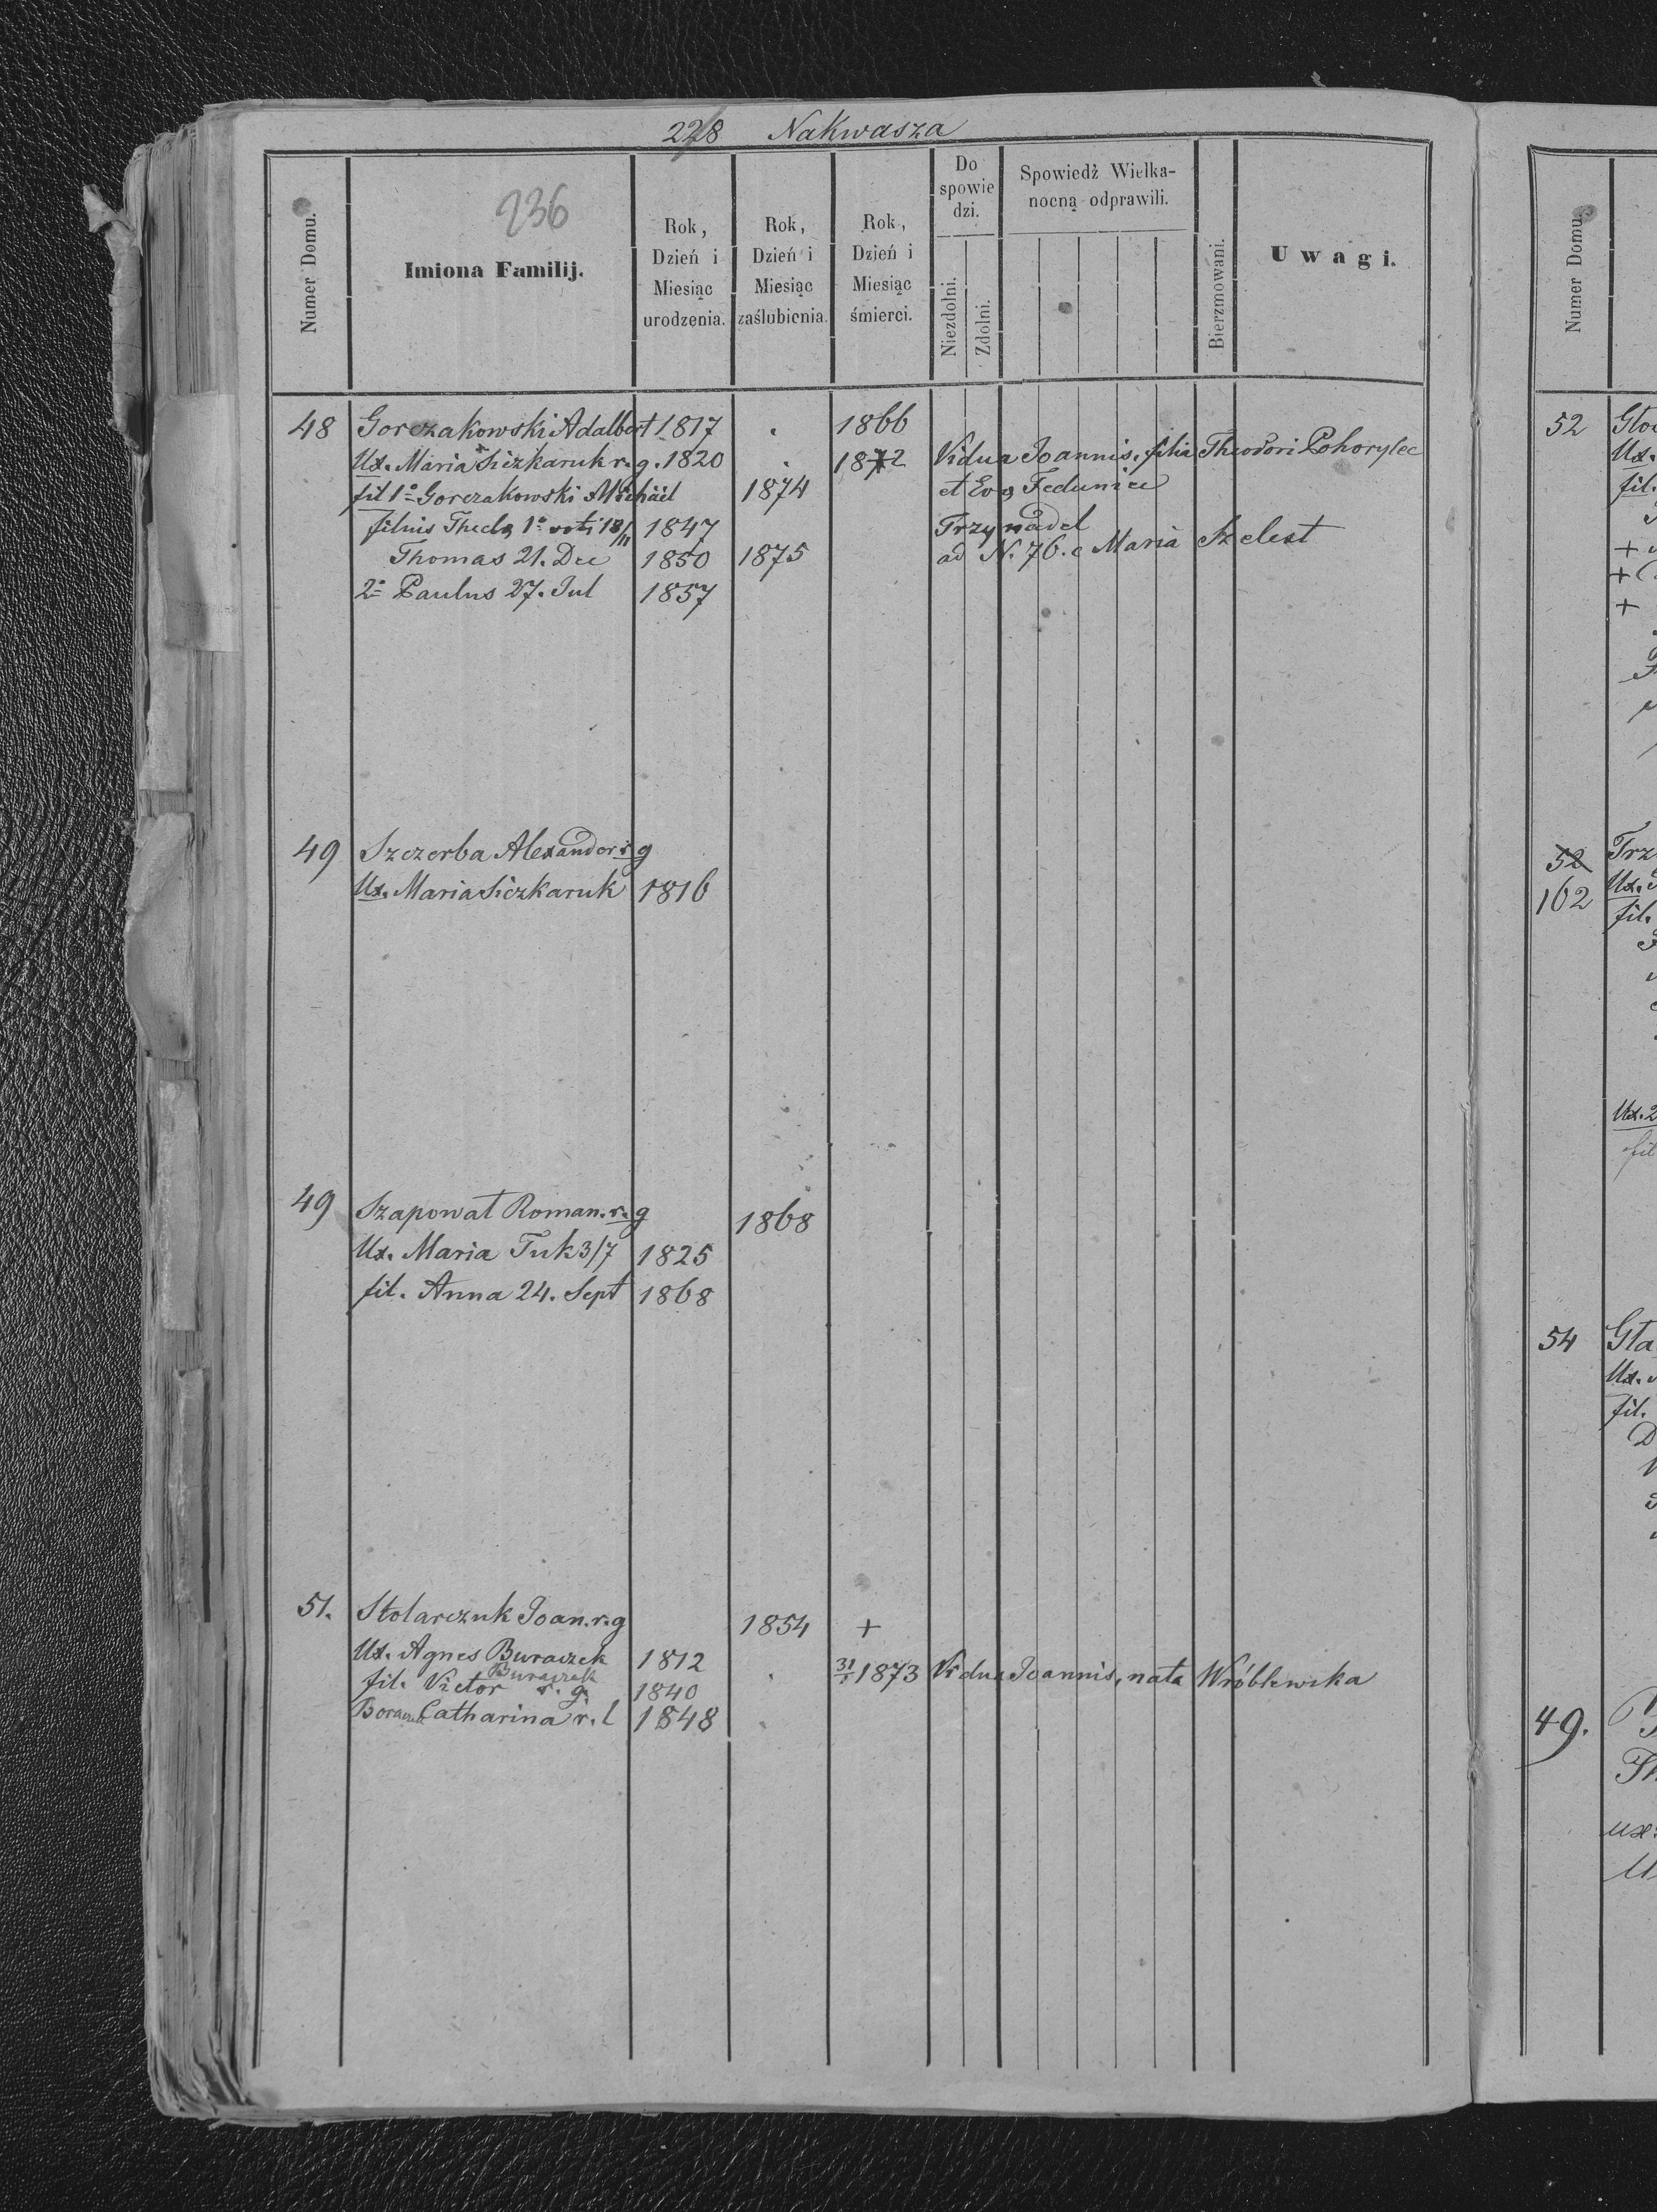 228 Nakwasza
236
Numer Domu.
Imiona Familij.
Rok, Dzień i Miesiąc urodzenia.
Rok, Dzień i Miesiąc zaślubienia.
Rok, Dzień i Miesiąc śmierci.
Do spowiedzi.
Niezdolni.
Zdolni.
Spowiedź Wielkanocną odprawili.
Bierzmowani.
Uwagi.
48 Gorczakowski Adalbert 1817 . 1866
Ux. Maria Siczkaruk r. g. 1820 . 1872 Vidua Joannis. filia Theodori Pohorylec
fil 1º Gorczakowski Michael 1874 et Eva Fedunice
filius Thecla 1º voti 18/11 1847 Trzynadel
Thomas 21. Dec 1850 1875 ad N. 76. c Maria Szelest
2º Paulus 27. Jul 1857
49 Szczerba Alexander r g
Ux. Maria Siczkaruk 1816
49 Szapowat Roman. r. g 1868
Ux. Maria Tuk 3/7 1825
fil. Anna 24. Sept 1868
51. Stolarczuk Joan. r. g 1854 +
Ux. Agnes Buraczek 1812 . 31/1 1873 Vidua Joannis, nata Wróblewska
Buraczek
fil. Victor r. g. 1840
Catharina r. l 1848 .
Numer Domu.
52
Ux.
fil.
+
+
+
52 Trz
162 Ux.
fil.
Ux. 2
fil
54 Gła
Ux.
fil.
49.
ux: